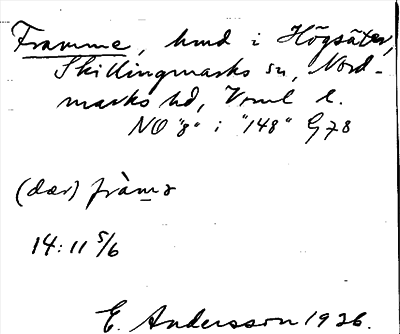 Framme, hmd i Högsäter,
Skillingmarks sn, Nord-
marks hd, Vrml l.
NO "8" i "148" G78
(dær) fràmə
14:11 5/6
E. Andersson 1926.